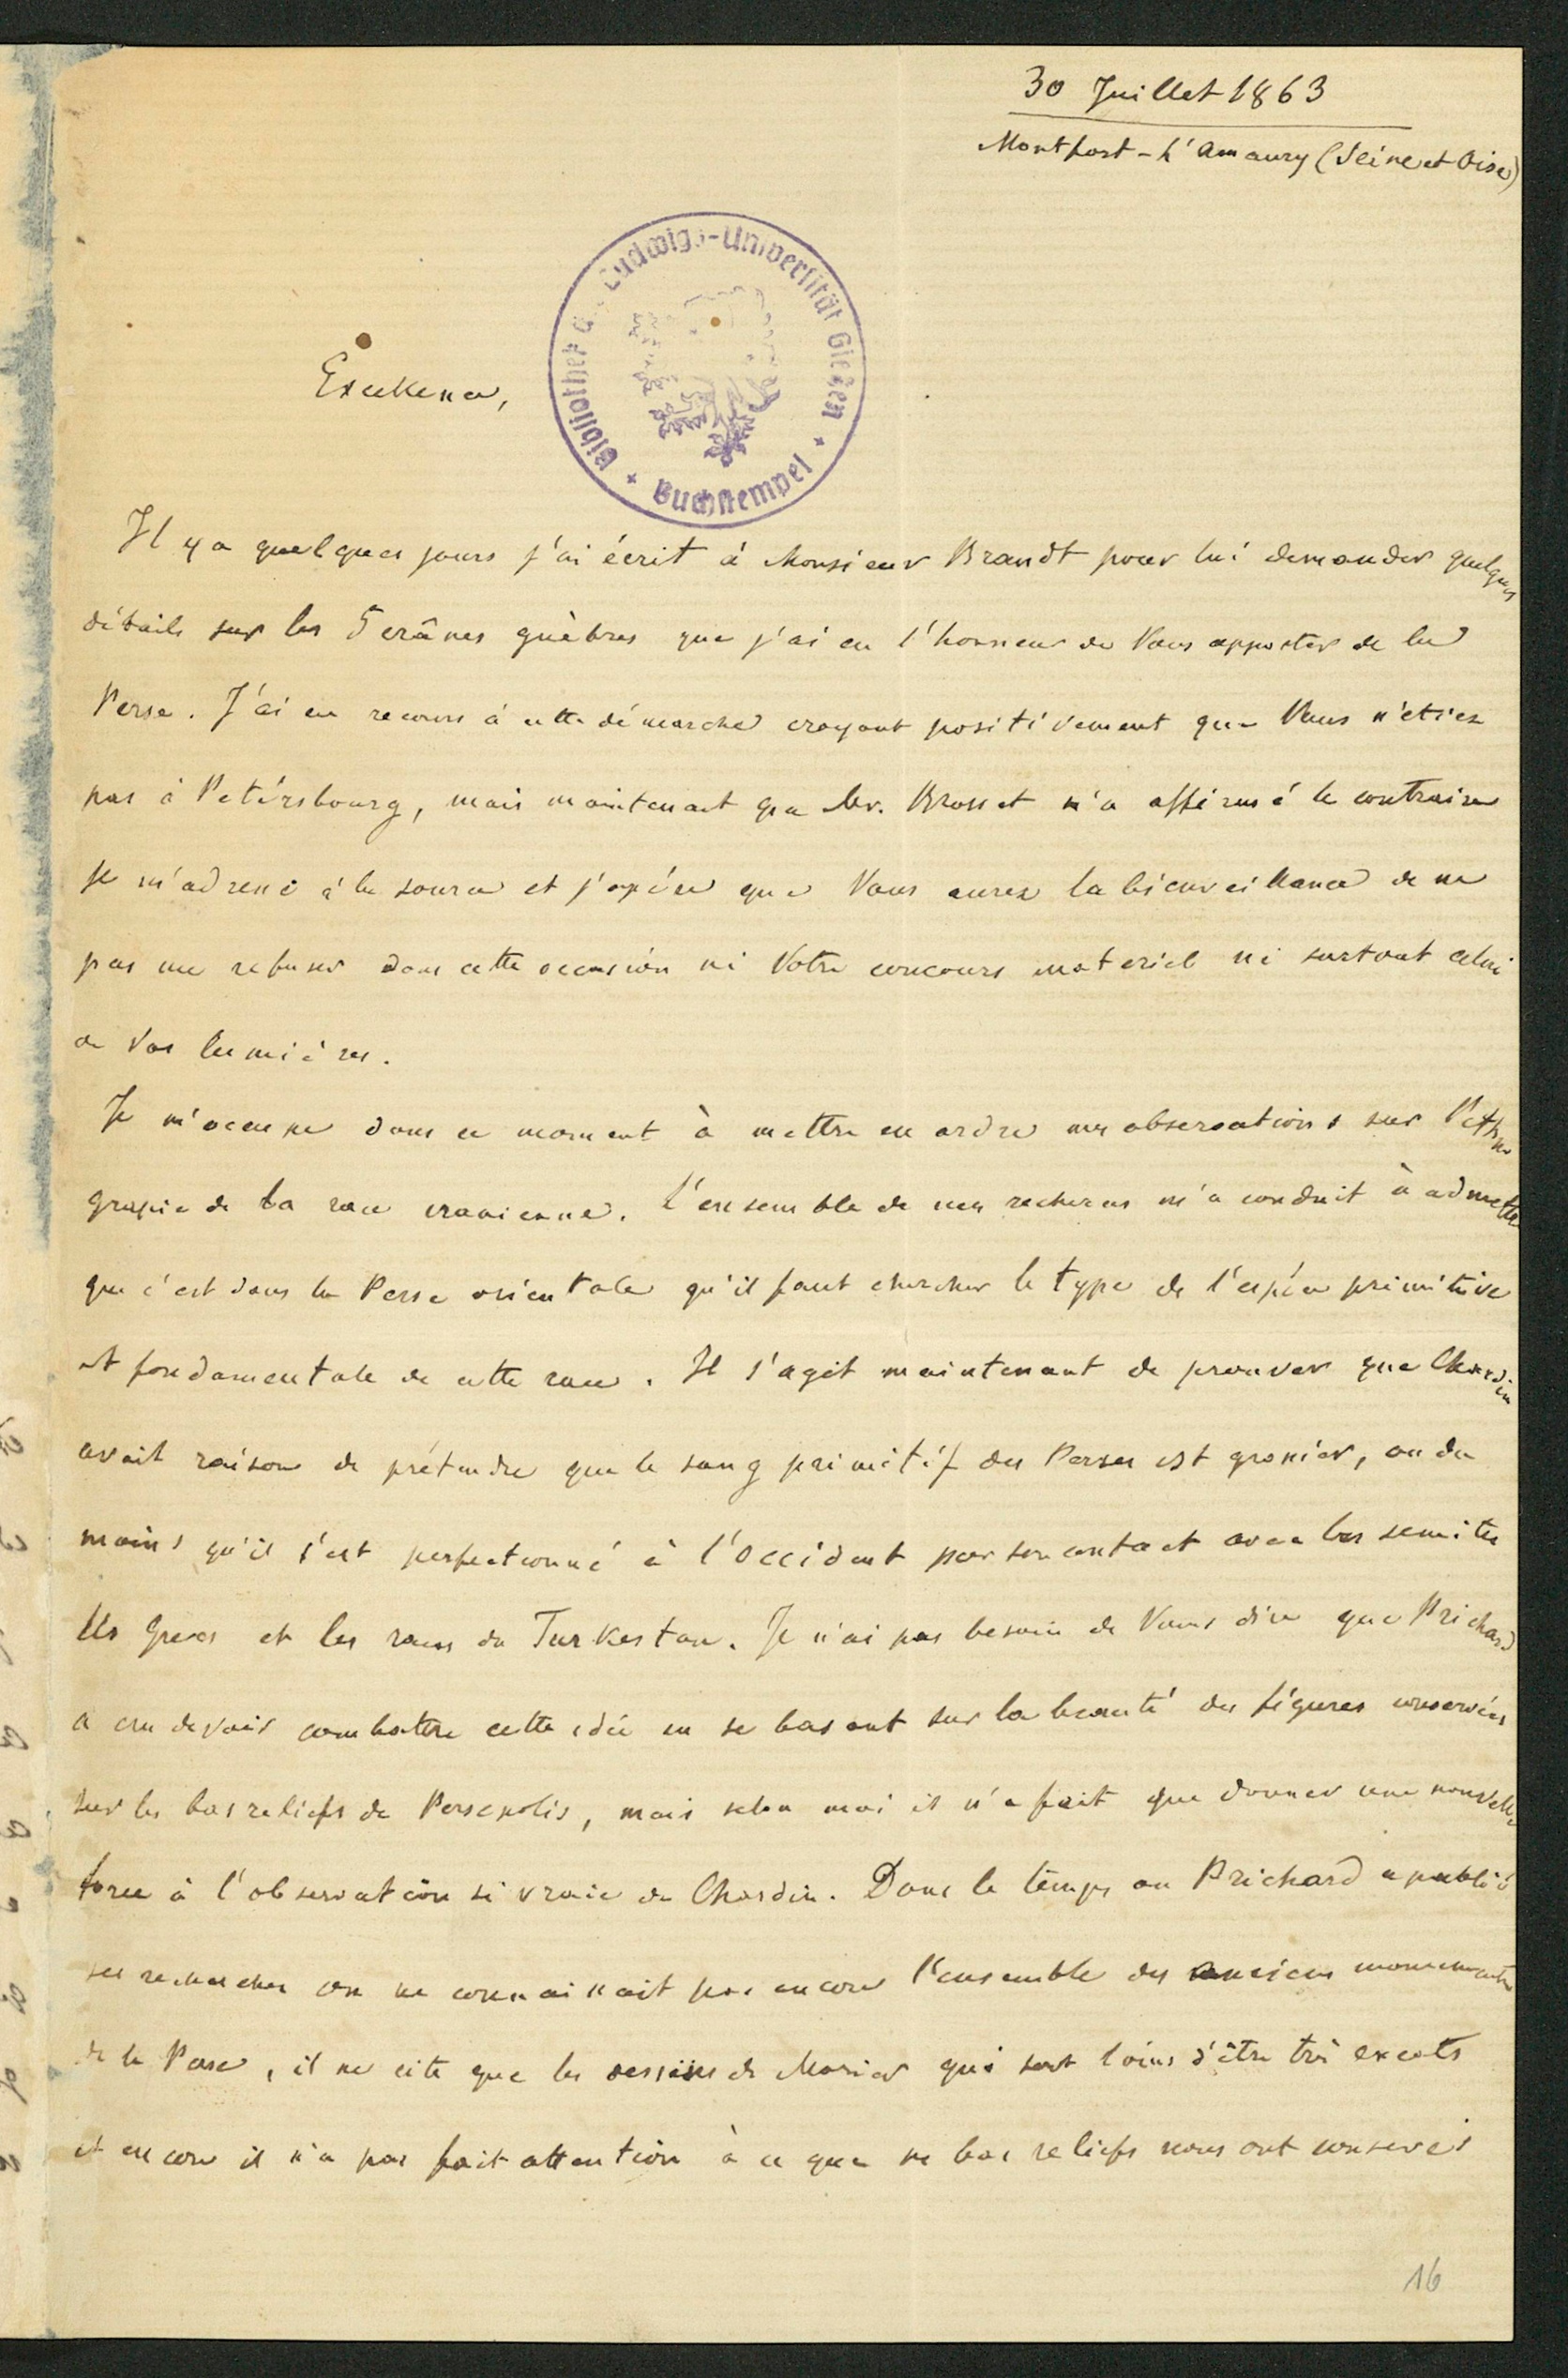 30 Juillet 1863
Montfort-l'Amaury (Seine et Oise)
Bibliothek d. Ludwigs-Universität Gießen + Buchstempel +
Excellence,
Il y a quelques jours j'ai écrit à Monsieur Brandt pour lui demander quelques
détails sur les 5 crânes guèbres que j'ai eu l'honneur de Vous apporter de la
Perse. J'ai eu recours à cette démarche croyant positivement que Vous n'etiez
pas à Petérsbourg, mais maintenant que Mr. Brosset m'a affirmé le contraire
je m'adresse à la source et j'espére que Vous aurez la bienveillance de ne
pas me refuser dans cette occasion ni Votre concours materiel ni surtout celui
de Vos lumières.
Je m'occupe dans ce moment à mettre en ordre mes observations sur l'ethno
grapie de la race eranienne. L'ensemble de mes recherces m'a conduit à admettre
que c'est dans la Perse orientale qu'il faut chercher le type de l'espéce primitive
et fondamentale de cette race. Il s'agit maintenant de prouver que Chardin
avait raison de prétendre que le sang primitif des Perses est grossier, ou du
moins qu'il s'est perfectionné à l'Occident par son contact avec les semites
les Grecs et les races du Turkestan. Je n'ai pas besoin de Vous dire que Prichard
a cru devoir combattre cette idée en se basant sur la beauté des figures conservées
sur les bas reliefs de Persepolis, mais selon moi il n'a fait que donner une nouvelle
force à l'observation si vraie de Chardin. Dans le temps ou Prichard a publié
ses recherches on ne connaissait pas encore l'ensemble des anciens monuments
de la Perse, il ne cite que les dessins de Morier qui sont loins d'être très exacts
et encore il n'a pas fait attention à ce que ses bas reliefs nous ont conservés
16